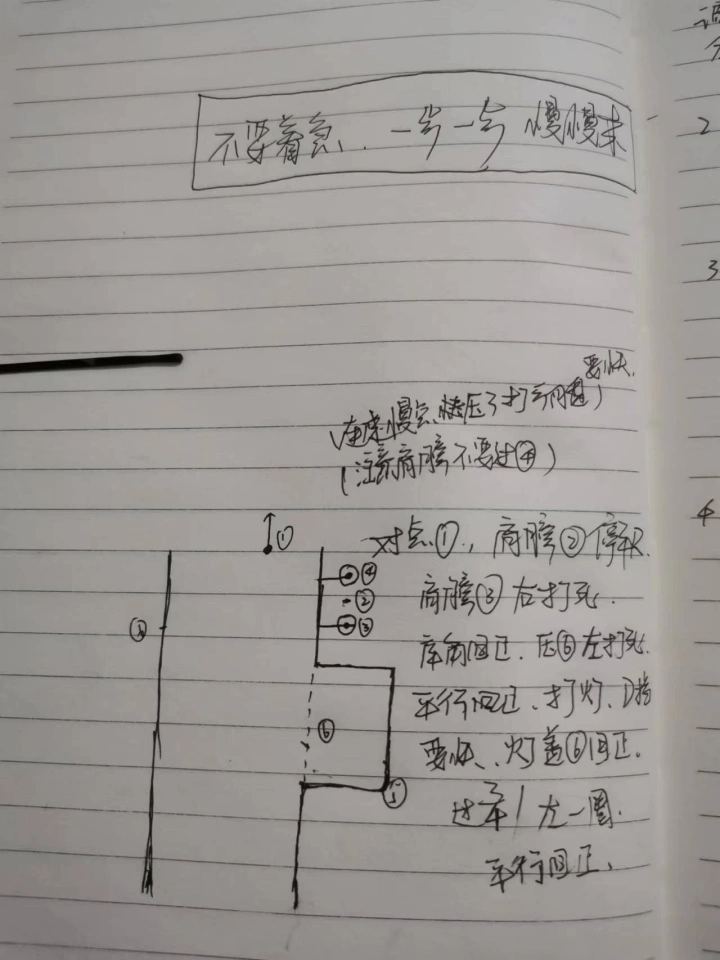 不要着急、一步一步 慢慢来
要快
(速度慢点,快压了打方向盘)
(注意肩膀不要过④)
① 对点①,肩膀②停车
④
② 肩膀③右打死
③
库角回正、压⑥左打死
平行回正、打灯、D挡
⑥ 要快、灯盖⑥回正
⑤ 左一圈
平行回正、
2
3
4